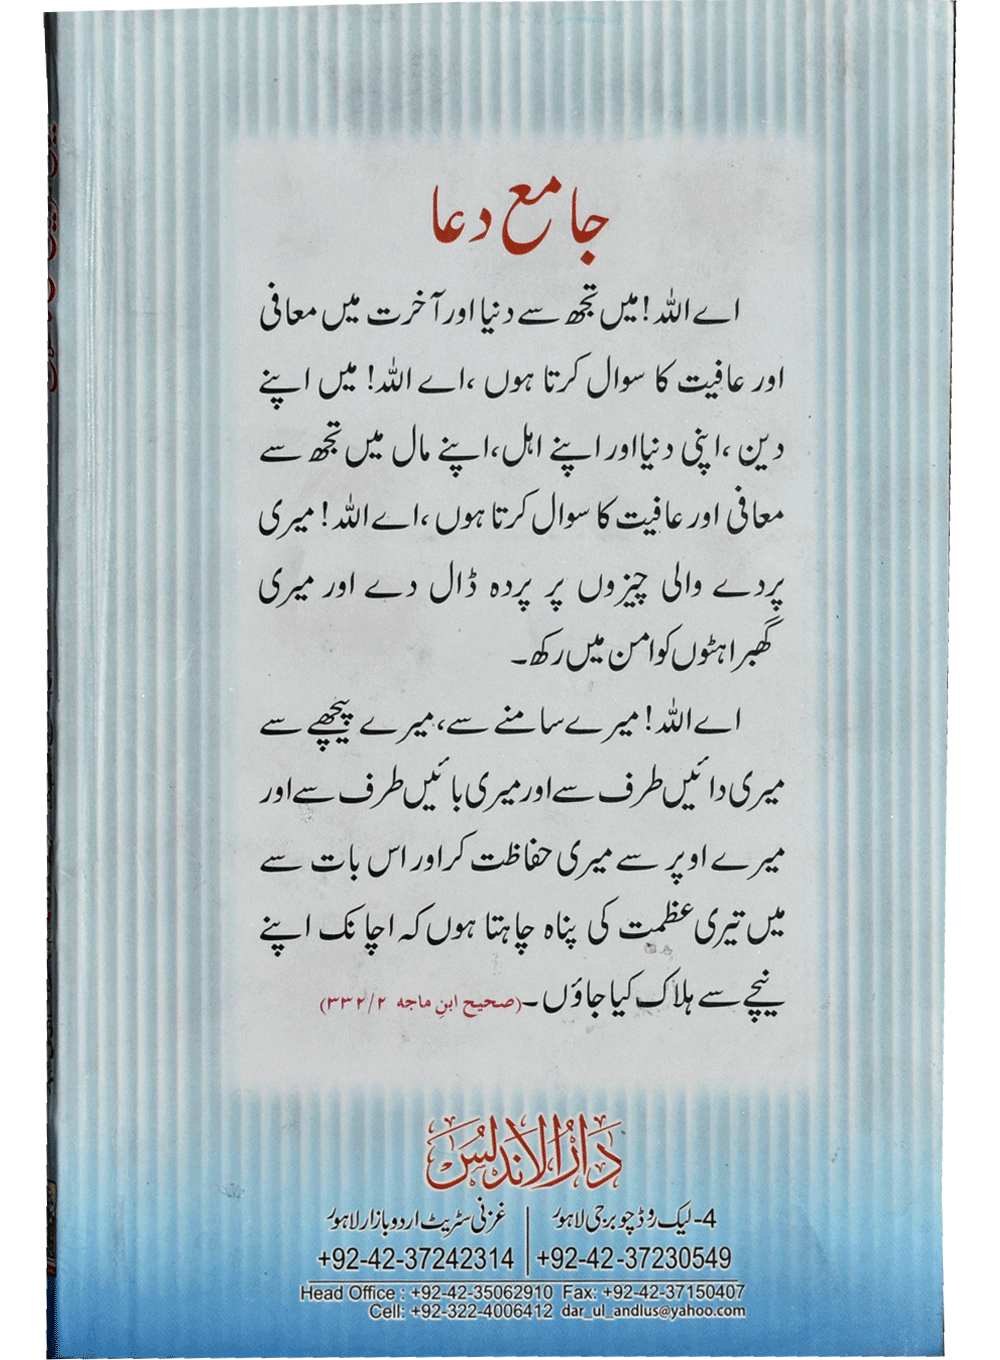 جامع دعا
اے اللہ! میں تجھ سے دنیا اور آخرت میں معافی
اور عافیت کا سوال کرتا ہوں، اے اللہ! میں اپنے
دین، اپنی دنیا اور اپنے اہل، اپنے مال میں تجھ سے
معافی اور عافیت کا سوال کرتا ہوں، اے اللہ! میری
پردے والی چیزوں پر پردہ ڈال دے اور میری
گھبراہٹوں کو امن میں رکھ۔
اے اللہ! میرے سامنے سے، میرے پیچھے سے
میری دائیں طرف سے اور میری بائیں طرف سے اور
میرے اوپر سے میری حفاظت کر اور اس بات سے
میں تیری عظمت کی پناہ چاہتا ہوں کہ اچانک اپنے
نیچے سے ہلاک کیا جاؤں۔ (صحیح ابنِ ماجہ ۳۳۲/۲)
دَارُالاَندلُس
4- لیک روڈ چوبرجی لاہور
+92-42-37230549
غزنی سٹریٹ اردو بازار لاہور
+92-42-37242314
Head Office : +92-42-35062910 Fax: +92-42-37150407
Cell: +92-322-4006412 dar_ul_andlus@yahoo.com